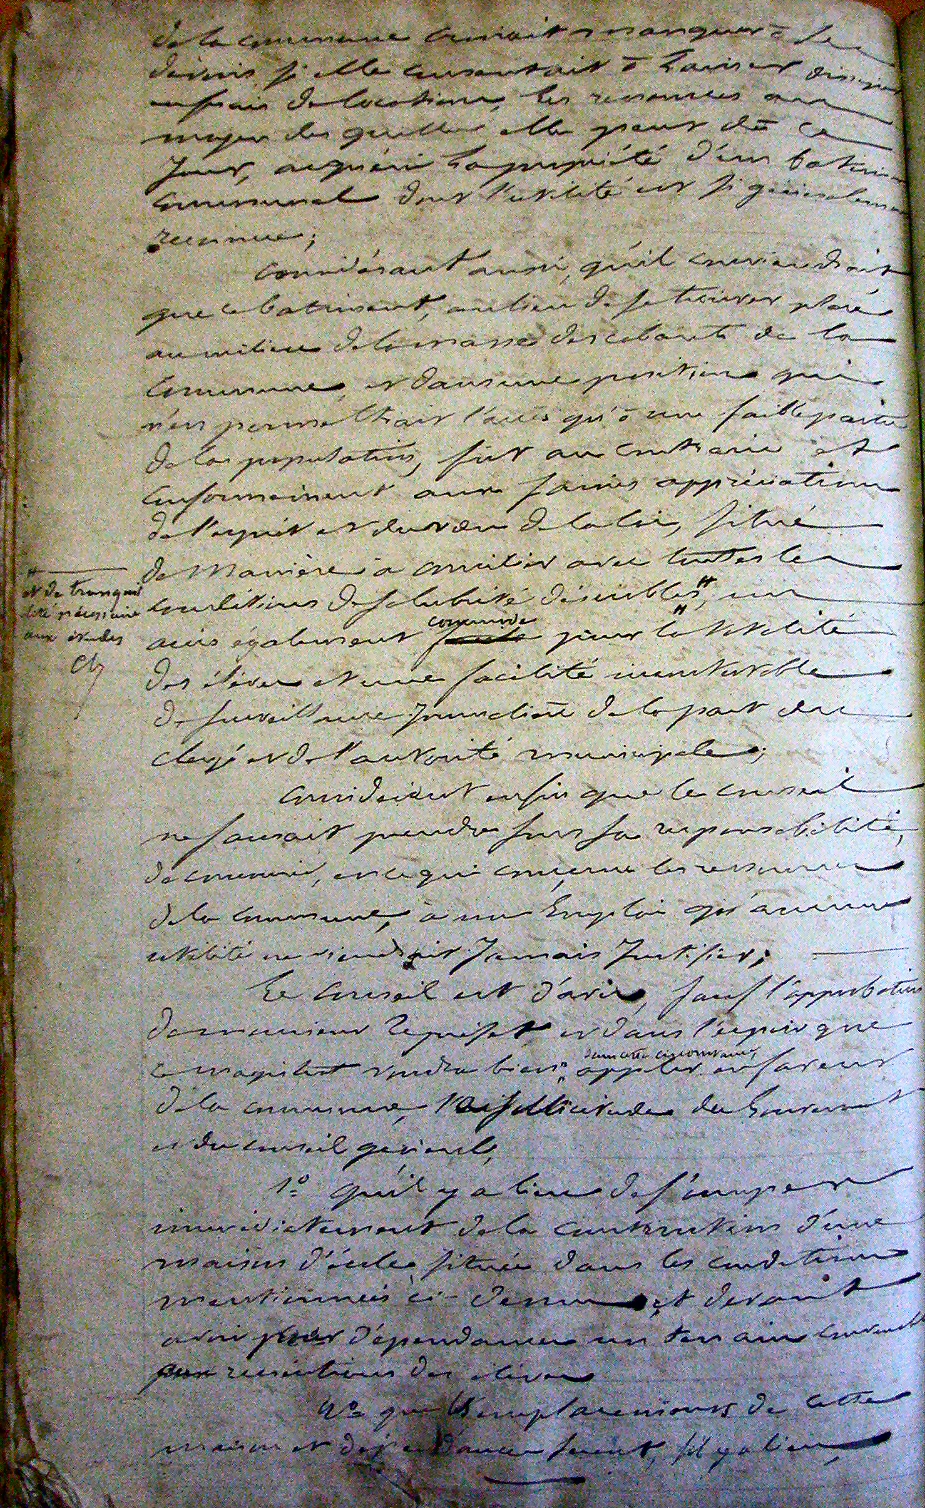 de la commune croirait manquer à ses
devoirs si elle consentait à laisser dissiper
en frais de location, les ressources au
moyen des quelles elle peut dès ce
jour, acquérir la propriété d'un batiment
communal dont l'utilité est si généralement
reconnue;
Considérant aussi, qu'il conviendrait
que ce batiment, au lieu de se trouver placé
au milieu de la masse des cabarets de la
commune, et dans une position qui
n'en permettrait l'accès qu'à une faible partie
de la population, fut au contraire et
conformément aux saines appréciations
de l'esprit et du vœu de la loi, situé
de manière à concilier avec toutes les
conditions de salubrité désirables #, un
accès également commode pour la # totalité
des élèves et une facilité incontestable
de surveillance journalière de la part du
clergé et de l'autorité municipale;
# et de tranquil
lité nécessaire
aux études
Considérant enfin que le conseil
ne saurait prendre sous sa responsabilité,
de concourir, en ce qui concerne les ressources
de la commune, à un emploi qu'aucune
utilité ne viendrait jamais justifier;
Le Conseil est d'avis, sauf l'approbation
de monsieur le préfet et dans l'espoir que
ce magistrat voudra bien dans cette circonstance, appeler en faveur
de la commune, la sollicitude du Gouvernement
et du conseil général,
1º qu'il y a lieu de s'occuper
immédiatement de la construction d'une
maison d'école située dans les conditions
mentionnées ci-dessus et devant
avoir pour dépendances un terrain convenable
aux récréations des élèves
2º que l'emplacement de cette
maison et dépendances soient, s'il y a lieu,